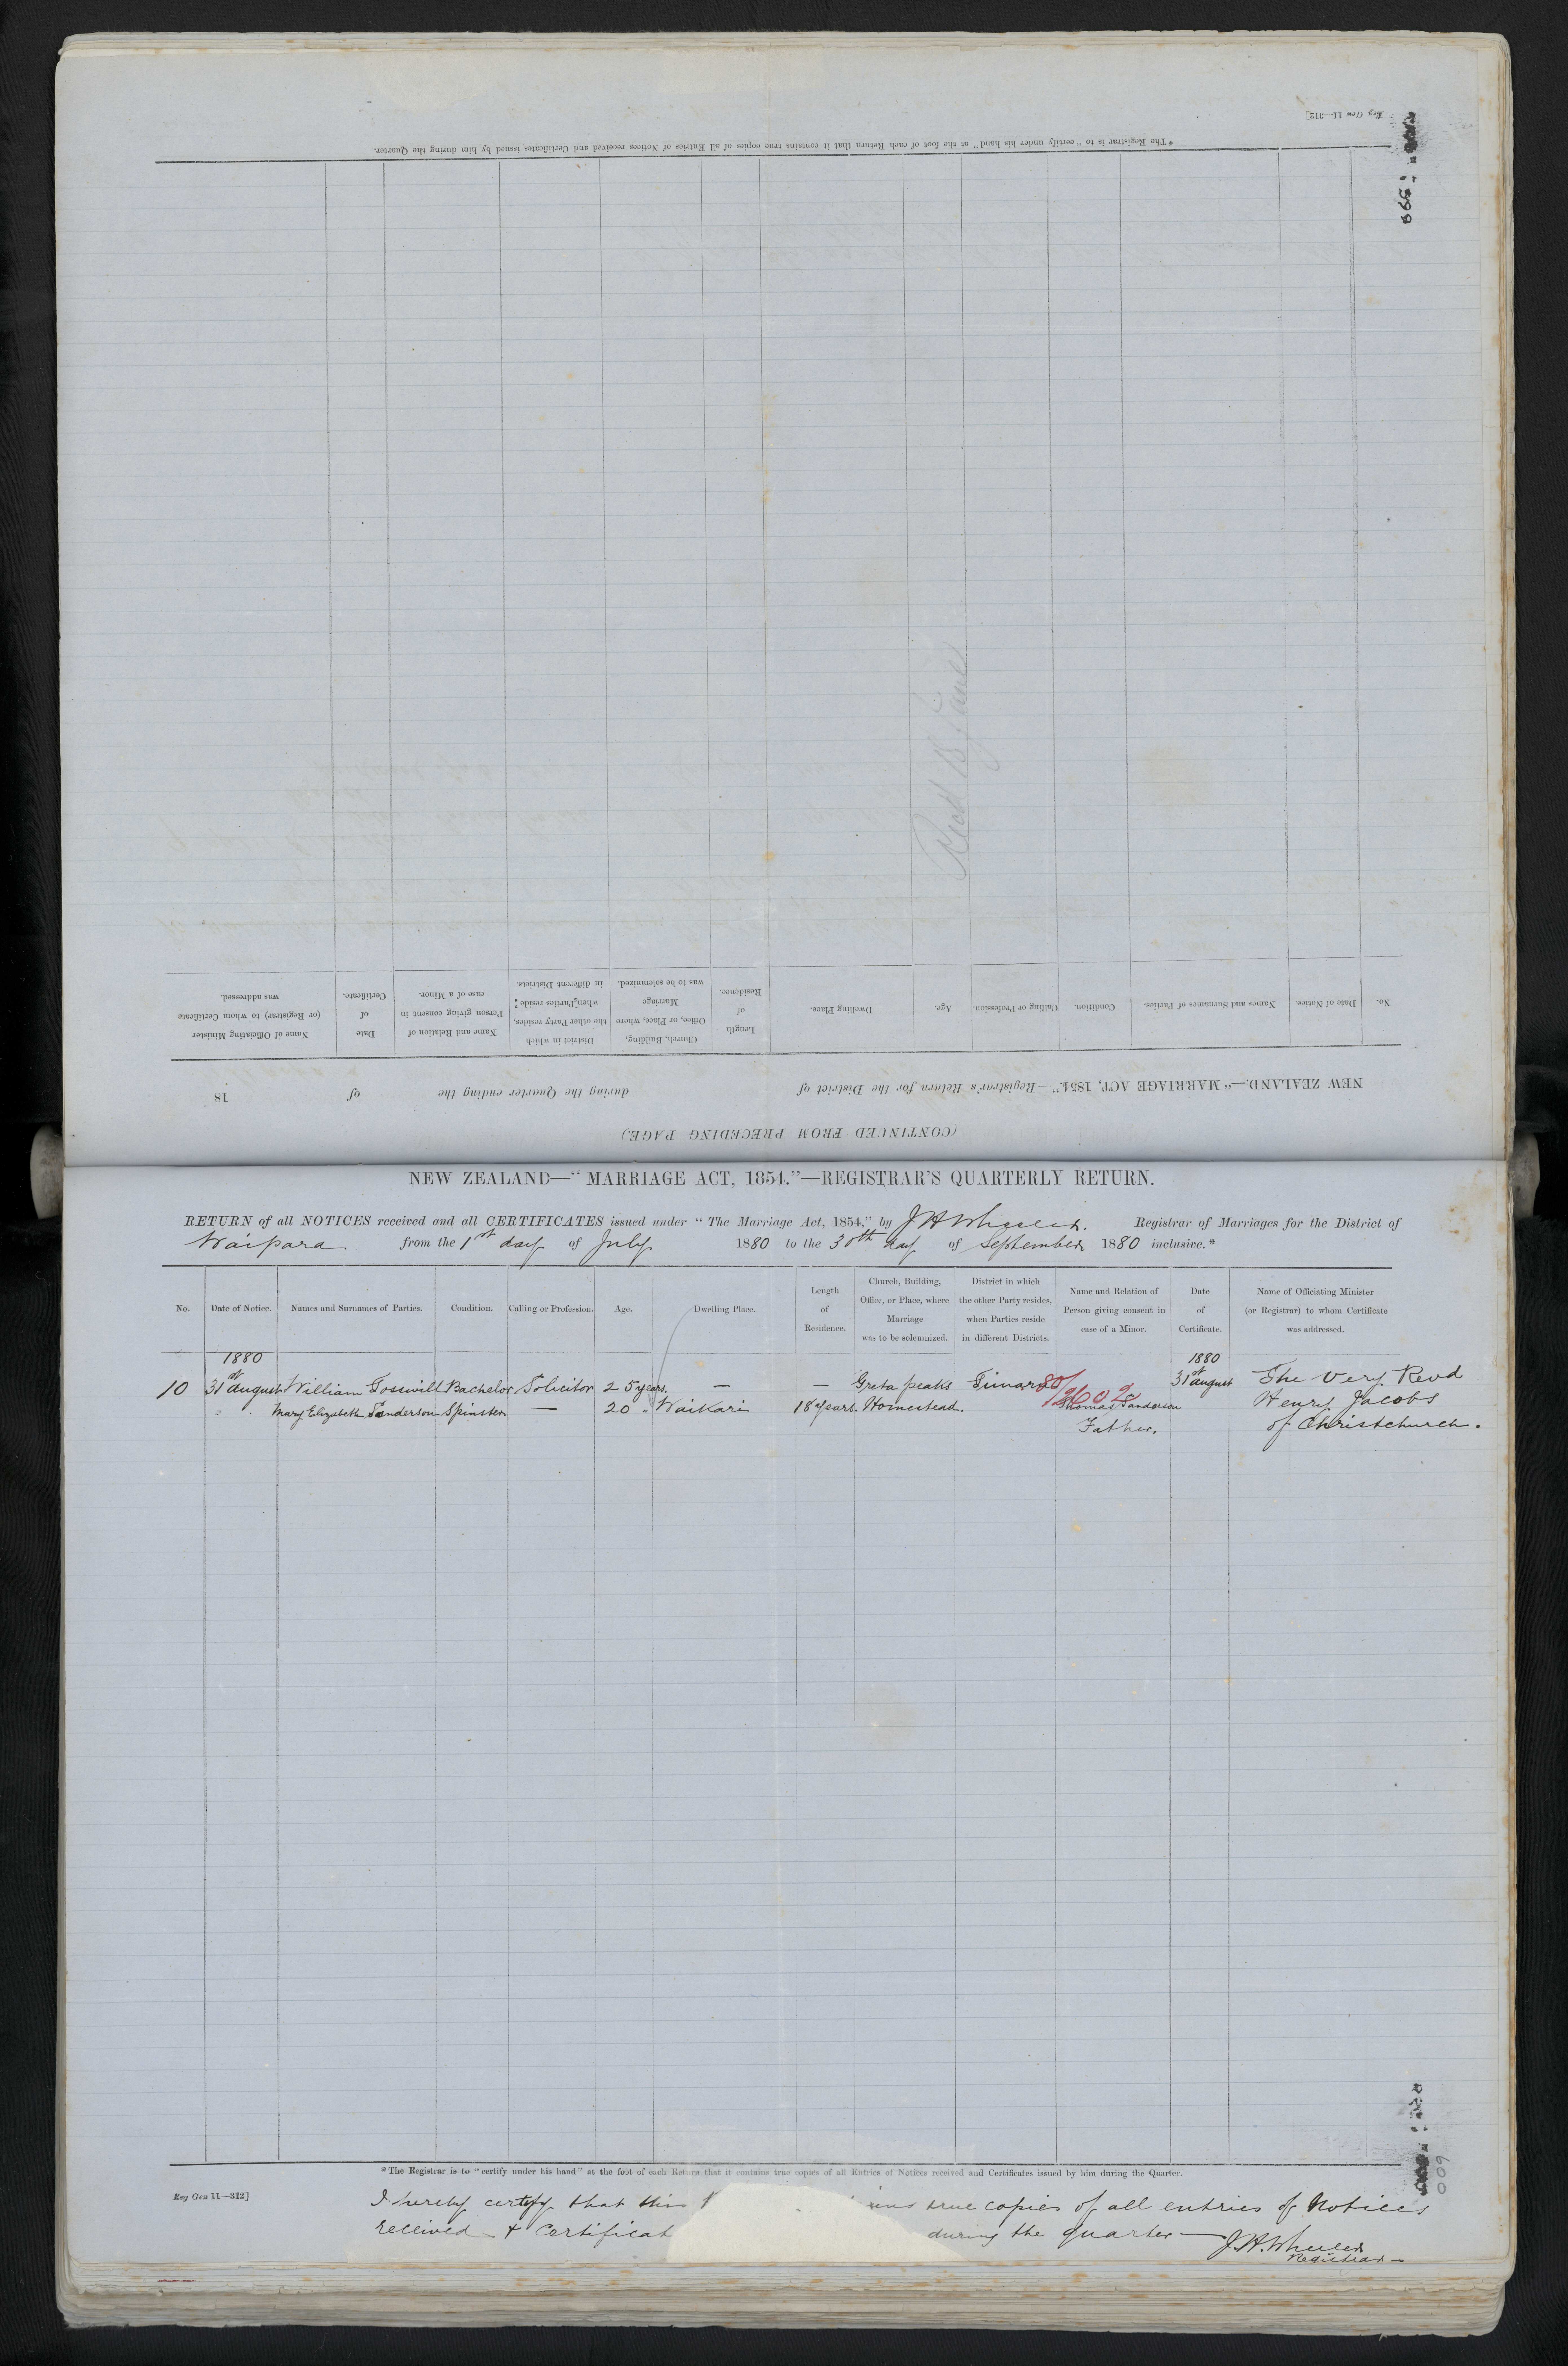 Reg Gen 11—312]
* The Registrar is to "certify under his hand" at the foot of each Return that it contains true copies of all Entries of Notices received and Certificates issued by him during the Quarter.
599
(CONTINUED FROM PRECEDING PAGE)
NEW ZEALAND.—"MARRIAGE ACT, 1854."—Registrar's Return for the District of during the Quarter ending the of 18
No. Date of Notice. Names and Surnames of Parties. Condition. Calling or Profession. Age. Dwelling Place. Length of Residence. Church, Building, Office, or Place, where Marriage was to be solemnized. District in which the other Party resides, when Parties reside in different Districts. Name and Relation of Person giving consent in case of a Minor. Date of Certificate. Name of Officiating Minister (or Registrar) to whom Certificate was addressed.
NEW ZEALAND—"MARRIAGE ACT, 1854."—REGISTRAR'S QUARTERLY RETURN.
RETURN of all NOTICES received and all CERTIFICATES issued under "The Marriage Act, 1854," by J H Wheeler. Registrar of Marriages for the District of
Waipara from the 1st day of July 1880 to the 30th day of September 1880 inclusive.*
No. Date of Notice. Names and Surnames of Parties. Condition. Calling or Profession. Age. Dwelling Place. Length of Residence. Church, Building, Office, or Place, where Marriage was to be solemnized. District in which the other Party resides, when Parties reside in different Districts. Name and Relation of Person giving consent in case of a Minor. Date of Certificate. Name of Officiating Minister (or Registrar) to whom Certificate was addressed.
1880 1880
10 31st August William Tosswill Bachelor Solicitor 25 years. — — Greta peaks Timaru 80/2602 31st August The Very Revd
" " Mary Elizabeth Sanderson Spinster — 20 " Waikari 18 years. Homestead. Thomas Sanderson Henry Jacobs
Father. of Christchurch.
* The Registrar is to "certify under his hand" at the foot of each Return that it contains true copies of all Entries of Notices received and Certificates issued by him during the Quarter.
Reg Gen 11—312]
I hereby certify that this true copies of all entries of Notices
received & Certificat during the quarter — J. H. Wheeler
Registrar —
600